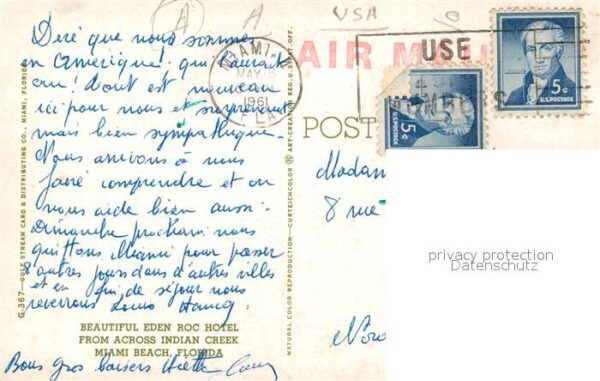 USA
Diré que nous sommes
en Amérique! qui l'aurait
cru! Tout est nouveau
ici pour nous et surprenant
mais bien sympathique.
Nous arrivons à nous
faire comprendre et on
nous aide bien aussi.
Dimanche prochain nous
quittons Miami pour passer
8 autres jours dans d'autres villes
et en fin de séjour nous
reverrons
BEAUTIFUL EDEN ROC HOTEL
FROM ACROSS INDIAN CREEK
MIAMI BEACH, FLORIDA
Bons gros baisers
G-367—GULF STREAM CARD & DISTRIBUTING CO., MIAMI, FLORIDA
NATURAL COLOR REPRODUCTION—CURTEICHCOLOR ® ART-CREATION REG. U.S. PAT. OFF.
MIAMI
MAY
1961
FLA.
AIR MAIL
USE
NUMBERS
5¢
U.S. POSTAGE
5¢
U.S. POSTAGE
POST
Madam
8 rue
privacy protection
Datenschutz